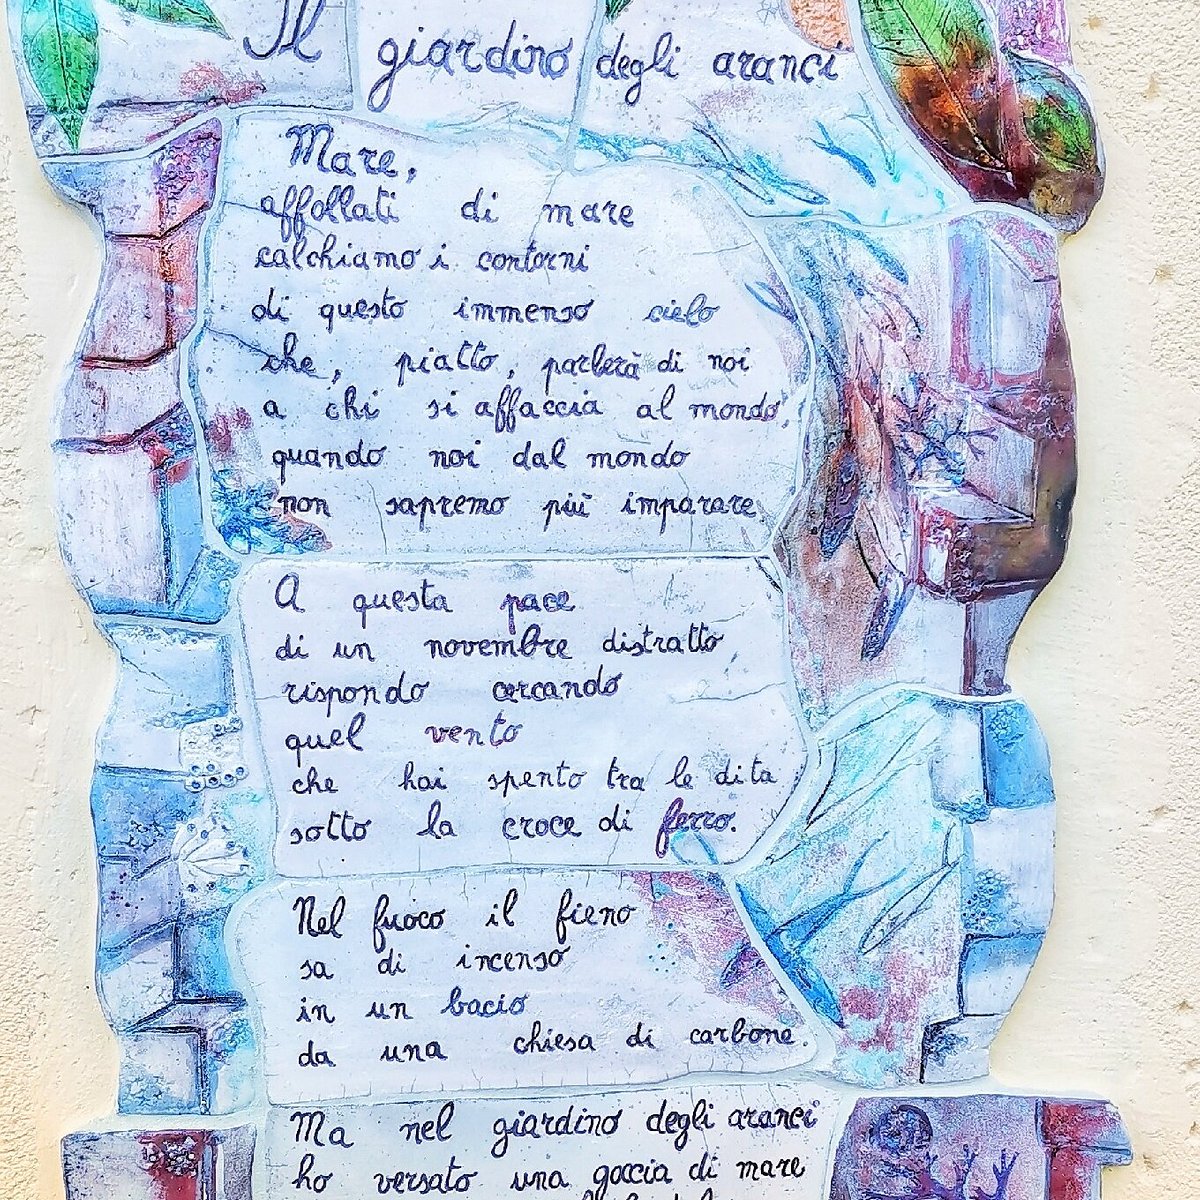 Il giardino degli aranci
Mare,
affollati di mare
calchiamo i contorni
di questo immenso cielo
che, piatto, parlerà di noi
a chi si affaccia al mondo,
quando noi dal mondo
non sapremo più imparare
A questa pace
di un novembre distratto
rispondo cercando
quel vento
che hai spento tra le dita
sotto la croce di ferro.
Nel fuoco il fieno
sa di incenso
in un bacio
da una chiesa di carbone.
Ma nel giardino degli aranci
ho versato una goccia di mare